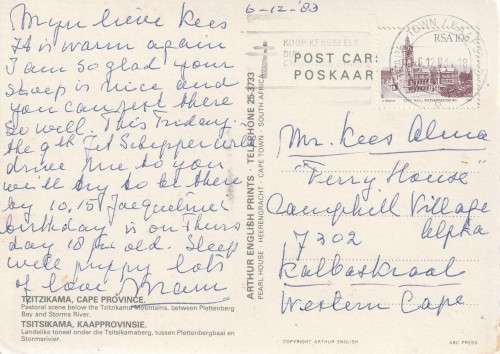 6-12-83
Myn lieve Kees
It is warm again
I am so glad your
sheep is nice and
you can rest there
So will. This Friday.
the 9th Jit Schipper will
drive me to you
will try to be there
by 10.15 Jacqueline
birthday is on Thurs
day 18 yrs old. Sleep
well puppy lots
of love Mam
TZITZIKAMA, CAPE PROVINCE.
Pastoral scene below the Tzitzikama Mountains, between Plettenberg
Bay and Storms River.
TSITSIKAMA, KAAPPROVINSIE.
Landelike toneel onder die Tsitsikamaberg, tussen Plettenbergbaai en
Stormsrivier.
ARTHUR ENGLISH PRINTS - TELEPHONE 25-3733
PEARL HOUSE HEERENGRACHT CAPE TOWN SOUTH AFRICA
POST CAR
POSKAAR
TOWN
RSA 10c
Mr. Kees Alma
"Ferry House"
Camphill Village
Alpha
7302
Kalbaskraal
Western Cape
COPYRIGHT ARTHUR ENGLISH
ABC PRESS